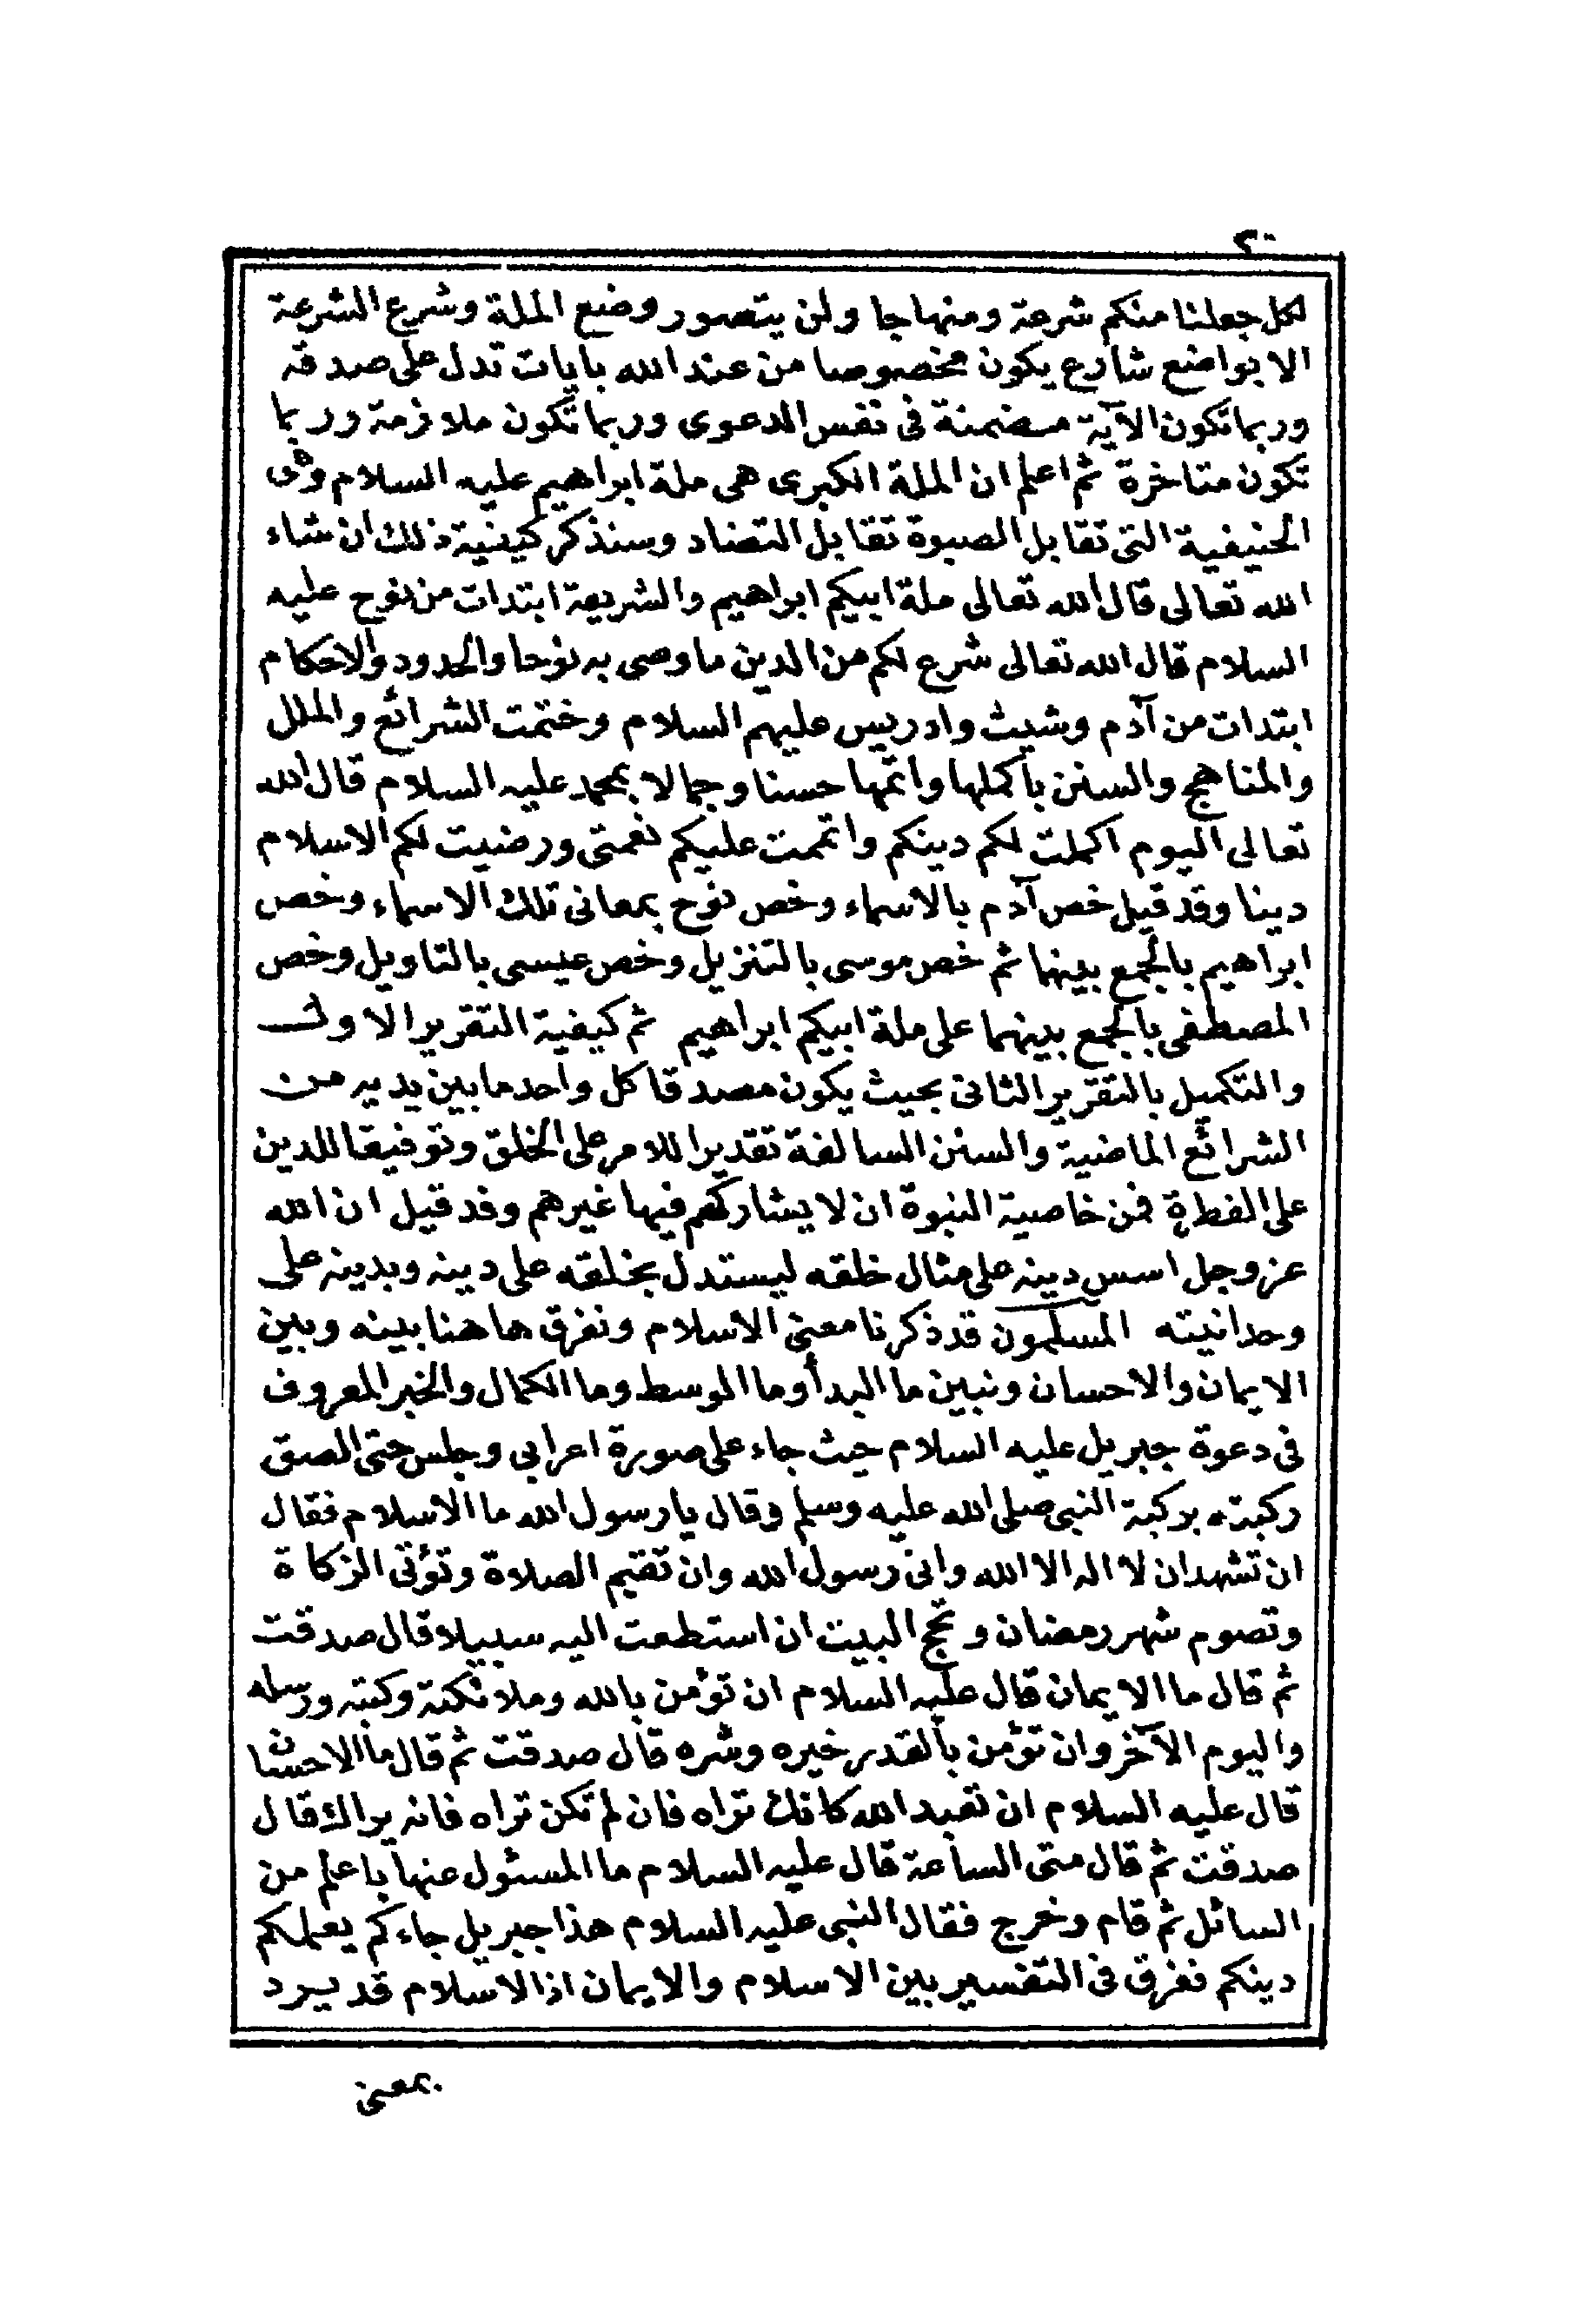 ٢٠
لكل جعلنا منكم شرعة ومنهاجا ولن يتصور وضع الملة وشرع الشرعة
الا بواضع شارع يكون مخصوصا من عند الله بايات تدل على صدقه
وربما تكون الآية مضمنة فى نفس الدعوى وربما تكون ملازمة وربما
تكون متاخرة ثم اعلم ان الملة الكبرى هى ملة ابراهيم عليه السلام وهى
الحنيفية التى تقابل الصبوة تقابل التضاد وسنذكر كيفية ذلك ان شاء
الله تعالى قال الله تعالى ملة ابيكم ابراهيم والشريعة ابتدات من نوح عليه
السلام قال الله تعالى شرع لكم من الدين ما وصى به نوحا والحدود والاحكام
ابتدات من آدم وشيث وادريس عليهم السلام وختمت الشرائع والملل
والمناهج والسنن باكملها واتمها حسنا وجمالا بمحمد عليه السلام قال الله
تعالى اليوم اكملت لكم دينكم واتممت عليكم نعمتى ورضيت لكم الاسلام
دينا وقد قيل خص آدم بالاسماء وخص نوح بمعانى تلك الاسماء وخص
ابراهيم بالجمع بينهما ثم خص موسى بالتنزيل وخص عيسى بالتاويل وخص
المصطفى بالجمع بينهما على ملة ابيكم ابراهيم ثم كيفية التقرير الاول
والتكميل بالتقرير الثانى بحيث يكون مصدقا كل واحد ما بين يديه من
الشرائع الماضية والسنن السالفة تقديرا للامر على الخلق وتوفيقا للدين
على الفطرة فمن خاصية النبوة ان لا يشاركهم فيها غيرهم وقد قيل ان الله
عز وجل اسس دينه على مثال خلقه ليستدل بخلقه على دينه وبدينه على
وحدانيته المسلمون قد ذكرنا معنى الاسلام ونفرق هاهنا بينه وبين
الايمان والاحسان ونبين ما البدأ وما الوسط وما الكمال والخبر المعروف
فى دعوة جبريل عليه السلام حيث جاء على صورة اعرابى وجلس حتى الصق
ركبته بركبة النبى صلى الله عليه وسلم وقال يا رسول الله ما الاسلام فقال
ان تشهد ان لا اله الا الله وانى رسول الله وان تقيم الصلاة وتؤتى الزكاة
وتصوم شهر رمضان وتحج البيت ان استطعت اليه سبيلا قال صدقت
ثم قال ما الايمان قال عليه السلام ان تؤمن بالله وملائكته وكتبه ورسله
واليوم الآخر وان تؤمن بالقدر خيره وشره قال صدقت ثم قال ما الاحسان
قال عليه السلام ان تعبد الله كانك تراه فان لم تكن تراه فانه يراك قال
صدقت ثم قال متى الساعة قال عليه السلام ما المسئول عنها باعلم من
السائل ثم قام وخرج فقال النبى عليه السلام هذا جبريل جاءكم يعلمكم
دينكم ففرق فى التفسير بين الاسلام والايمان اذ الاسلام قد يرد
بمعنى